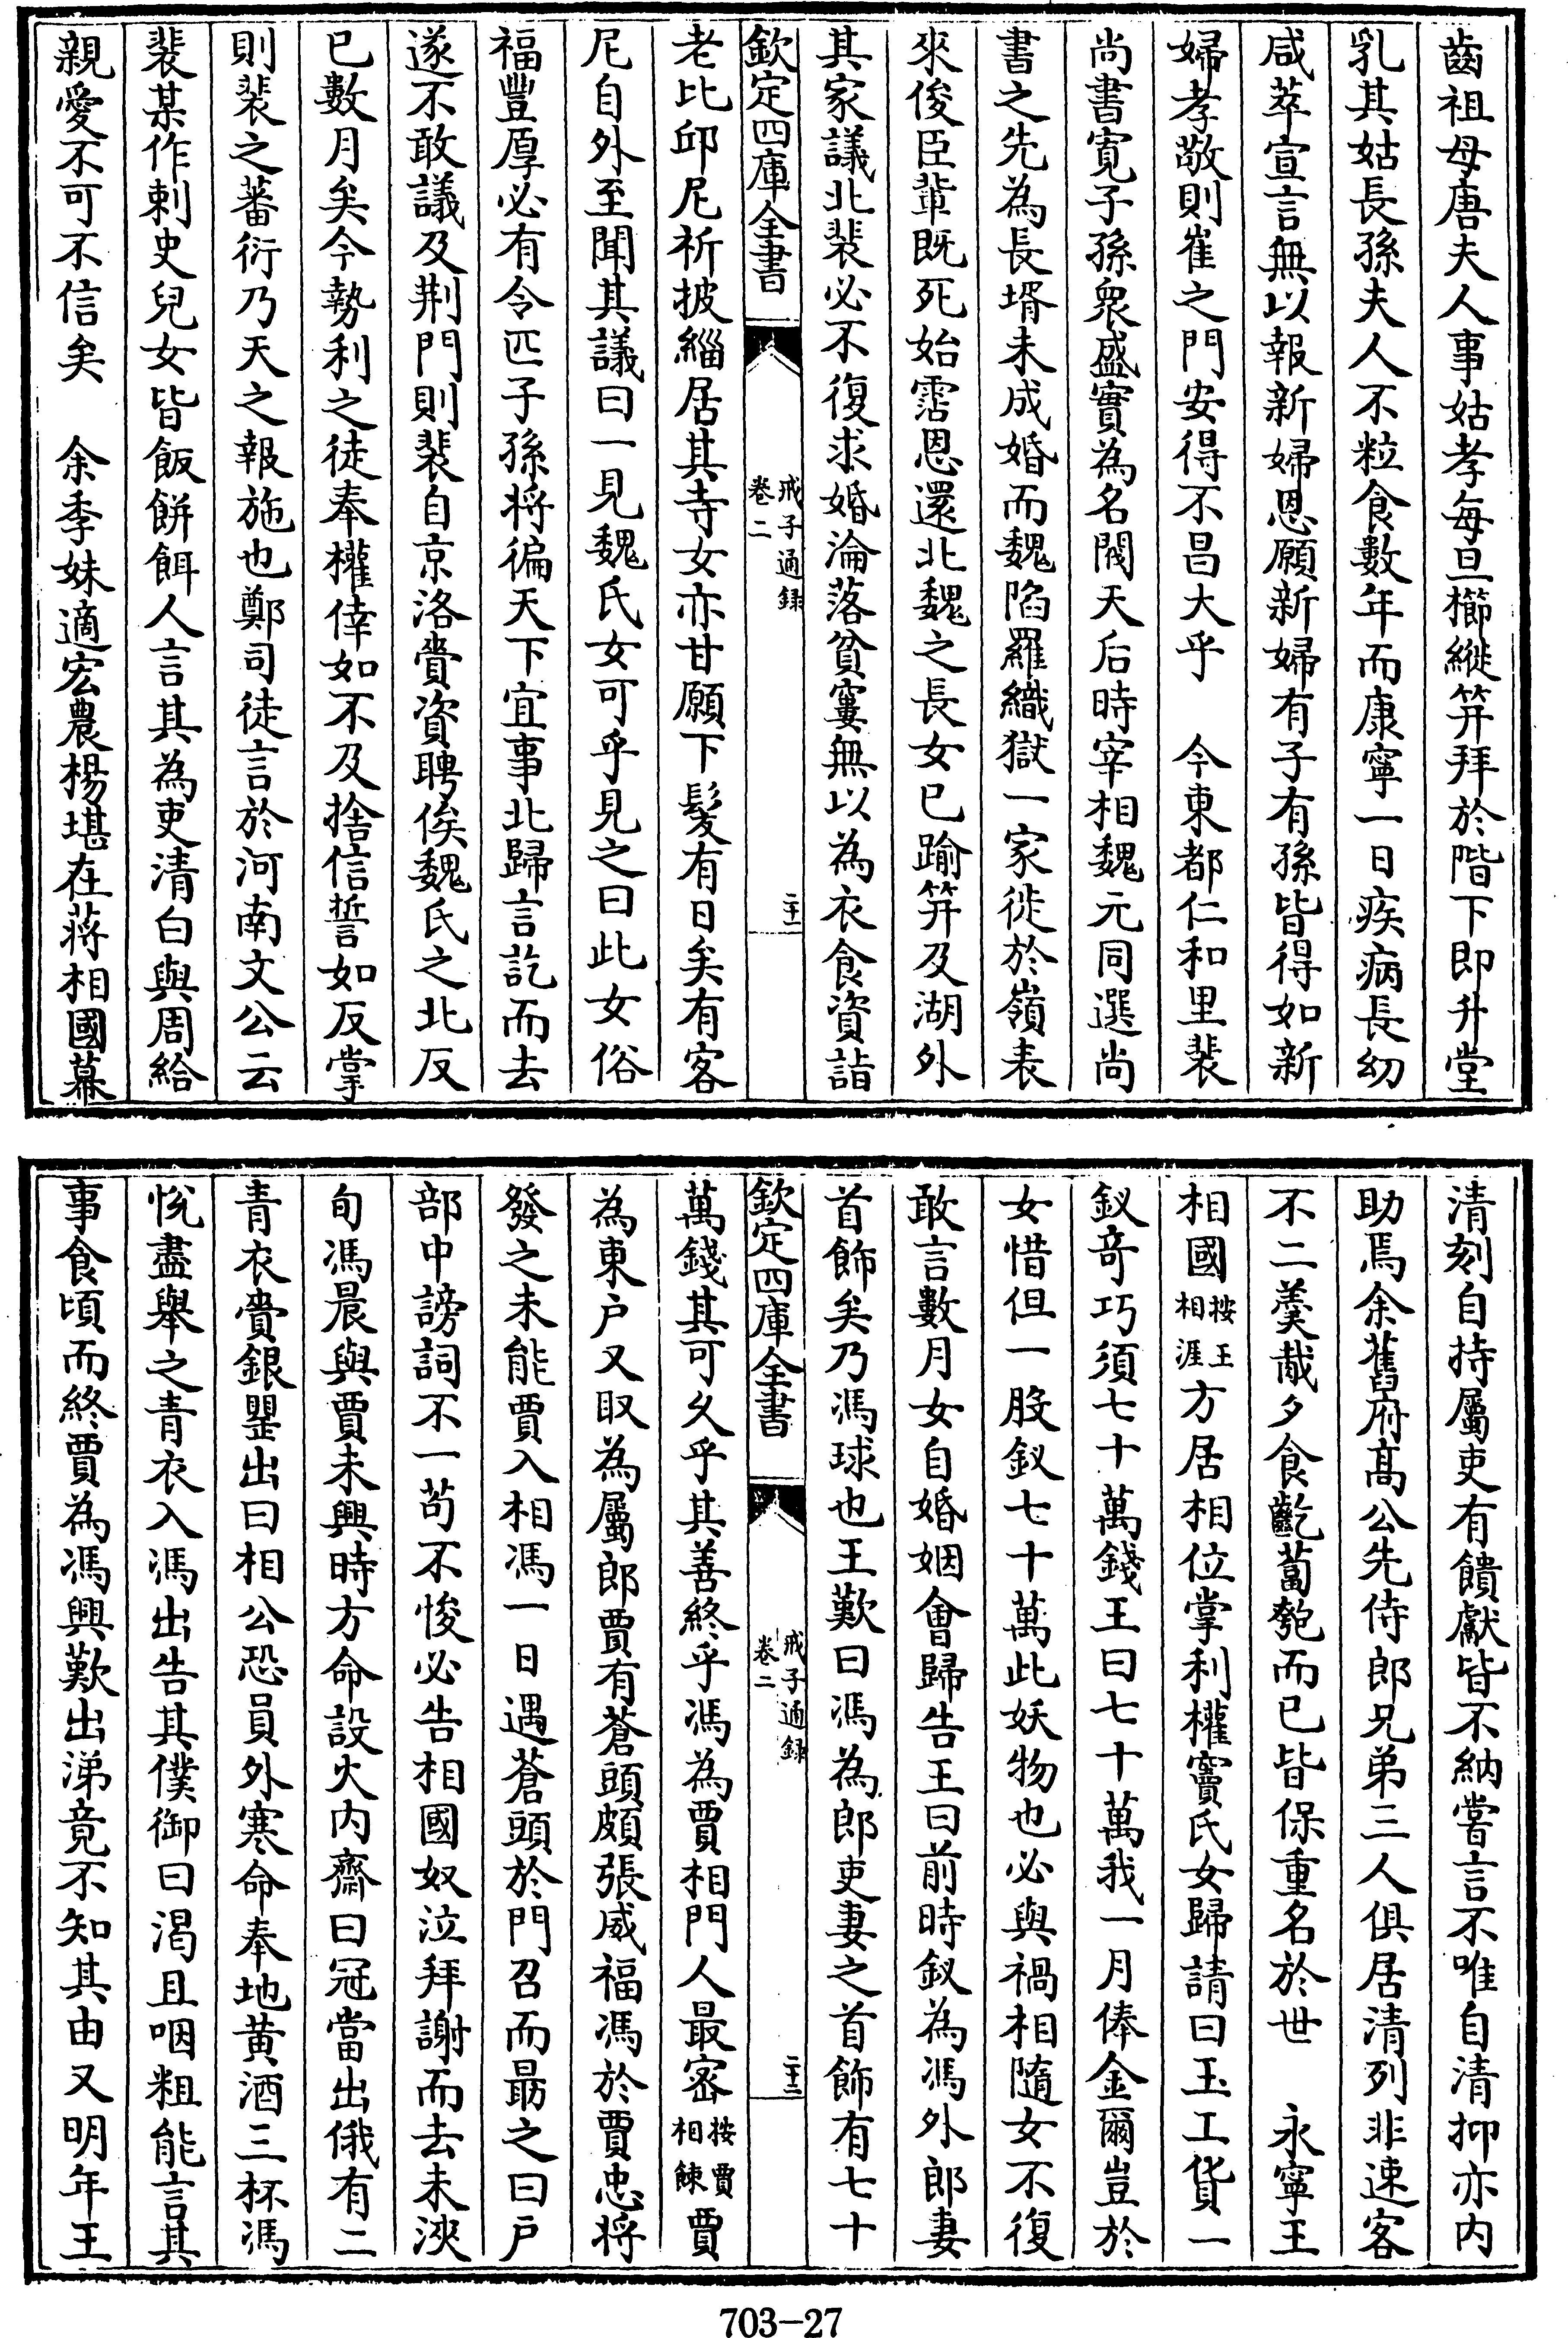 齒祖母唐夫人事姑孝每旦櫛縰笄拜於階下即升堂
乳其姑長孫夫人不粒食數年而康寧一日疾病長幼
咸萃宣言無以報新婦恩願新婦有子有孫皆得如新
婦孝敬則崔之門安得不昌大乎　今東都仁和里裴
尚書寛子孫衆盛實為名閥天后時宰相魏元同選尚
書之先為長壻未成婚而魏陷羅織獄一家徙於嶺表
來俊臣輩既死始霑恩還北魏之長女已踰笄及湖外
其家議北裴必不復求婚淪落貧窶無以為衣食資詣
欽定四庫全書
戒子通録
卷二
二十一
老比邱尼祈披緇居其寺女亦甘願下髪有日矣有客
尼自外至聞其議曰一見魏氏女可乎見之曰此女俗
福豐厚必有令匹子孫將徧天下宜事北歸言訖而去
遂不敢議及荆門則裴自京洛賫資聘俟魏氏之北反
已數月矣今勢利之徒奉權倖如不及捨信誓如反掌
則裴之蕃衍乃天之報施也鄭司徒言於河南文公云
裴某作刺史兒女皆飯餅餌人言其為吏清白與周給
親愛不可不信矣　余季妹適宏農楊堪在蔣相國幕
清刻自持屬吏有饋獻皆不納嘗言不唯自清抑亦内
助焉余舊府髙公先侍郎兄弟三人俱居清列非速客
不二羮胾夕食齕蔔匏而已皆保重名於世　永寧王
相國按王相涯方居相位掌利權竇氏女歸請曰玉工貨一
釵竒巧須七十萬錢王曰七十萬我一月俸金爾豈於
女惜但一股釵七十萬此妖物也必與禍相隨女不復
敢言數月女自婚姻會歸告王曰前時釵為馮外郎妻
首飾矣乃馮球也王歎曰馮為郎吏妻之首飾有七十
欽定四庫全書
戒子通録
卷二
二十二
萬錢其可久乎其善終乎馮為賈相門人最密按賈相餗賈
為東户又取為屬郎賈有蒼頭頗張威福馮於賈忠將
發之未能賈入相馮一日遇蒼頭於門召而朂之曰戸
部中謗詞不一苟不悛必告相國奴泣拜謝而去未浹
旬馮晨與賈未興時方命設火内齋曰冠當出俄有二
青衣賫銀罌出曰相公恐員外寒命奉地黄酒三杯馮
悅盡舉之青衣入馮出告其僕御曰渴且咽粗能言其
事食頃而終賈為馮興歎出涕竟不知其由又明年王
703-27